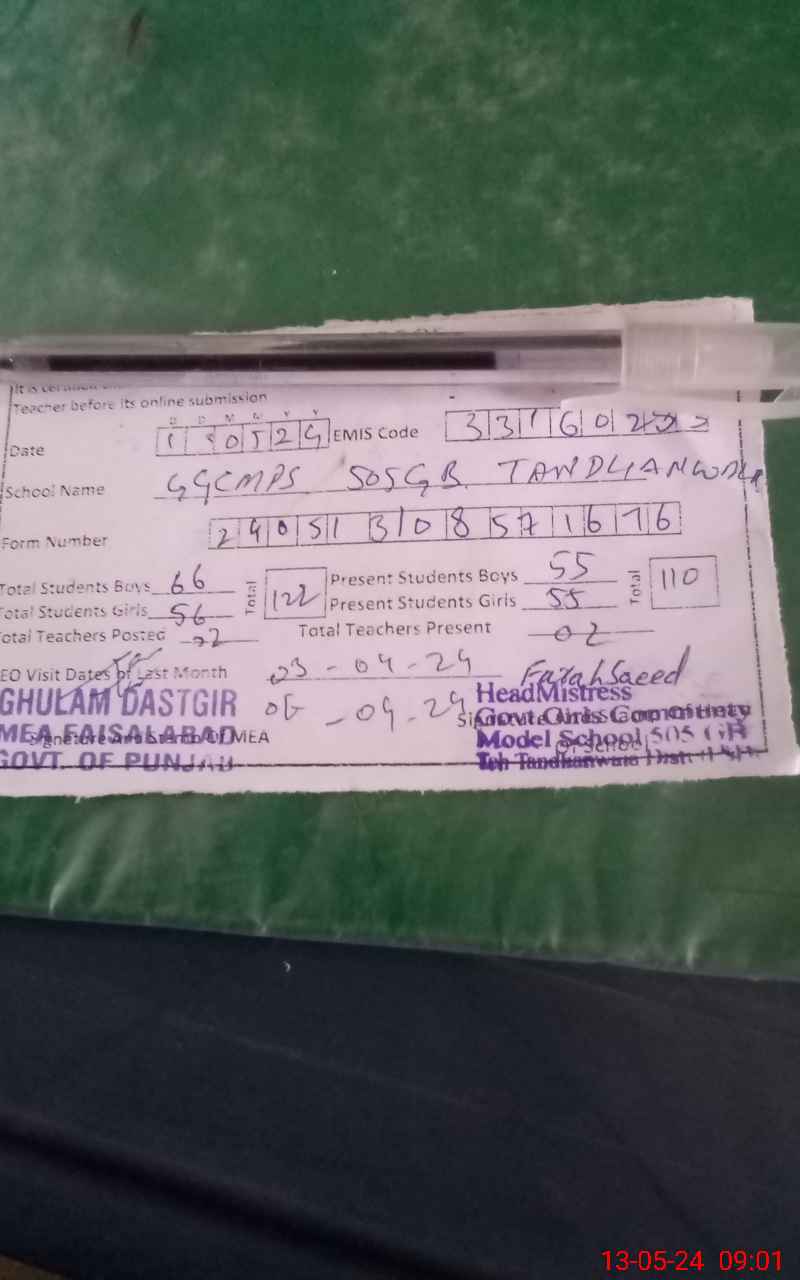 Teacher before its online submission
D D M M Y Y
Date 1 3 0 5 2 4 EMIS Code 3 3 1 6 0
School Name GGCMPS 505 GB TANDLIANWALA
Form Number 2 4 0 5 1 3 1 0 8 5 7 1 6 7 6
Total Students Boys 66 Total 122 Present Students Boys 55 Total 110
Total Students Girls 56 Present Students Girls 55
Total Teachers Posted 02 Total Teachers Present 02
EO Visit Dates of Last Month 03-04-24 Farah Saeed
06-04-24
GHULAM DASTGIR
MEA FAISALABAD
GOVT. OF PUNJAB
Signature And Stamp Of MEA
HeadMistress
Govt. Girls Community
Model School 505 GB
Teh Tandlianwala Distt
13-05-24 09:01